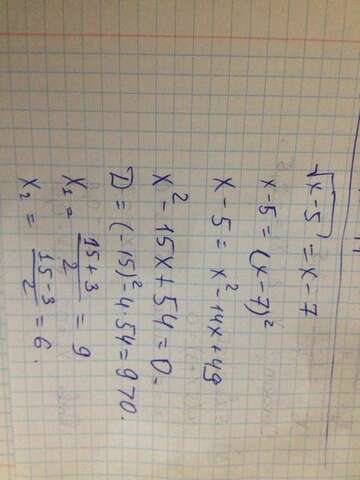 √x-5 = x-7
x-5 = (x-7)²
x-5 = x²-14x+49
x²-15x+54=0.
D = (-15)²-4·54=9>0.
x₁ = 15+3/2 = 9
x₂ = 15-3/2 = 6.